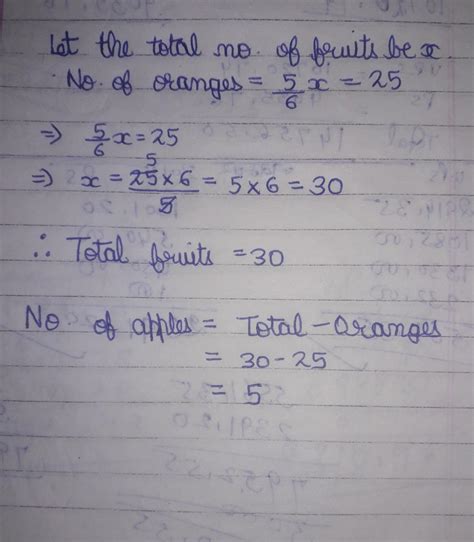 Let the total no. of fruits be x.
No. of oranges = 5/6 x = 25
⇒ 5/6 x = 25
⇒ x = 25 × 6 / 5 = 5 × 6 = 30
5
∴ Total fruits = 30
No. of apples = Total - Oranges
= 30 - 25
= 5